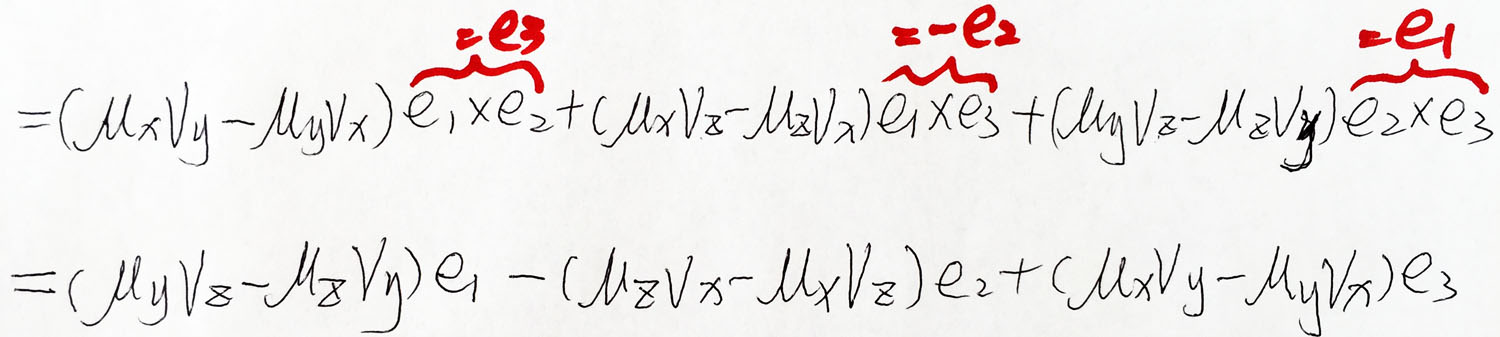 =e3 =-e2 =e1
=(μxVy-μyVx)e1×e2+(μxVz-μzVx)e1×e3+(μyVz-μzVy)e2×e3
=(μyVz-μzVy)e1-(μzVx-μxVz)e2+(μxVy-μyVx)e3